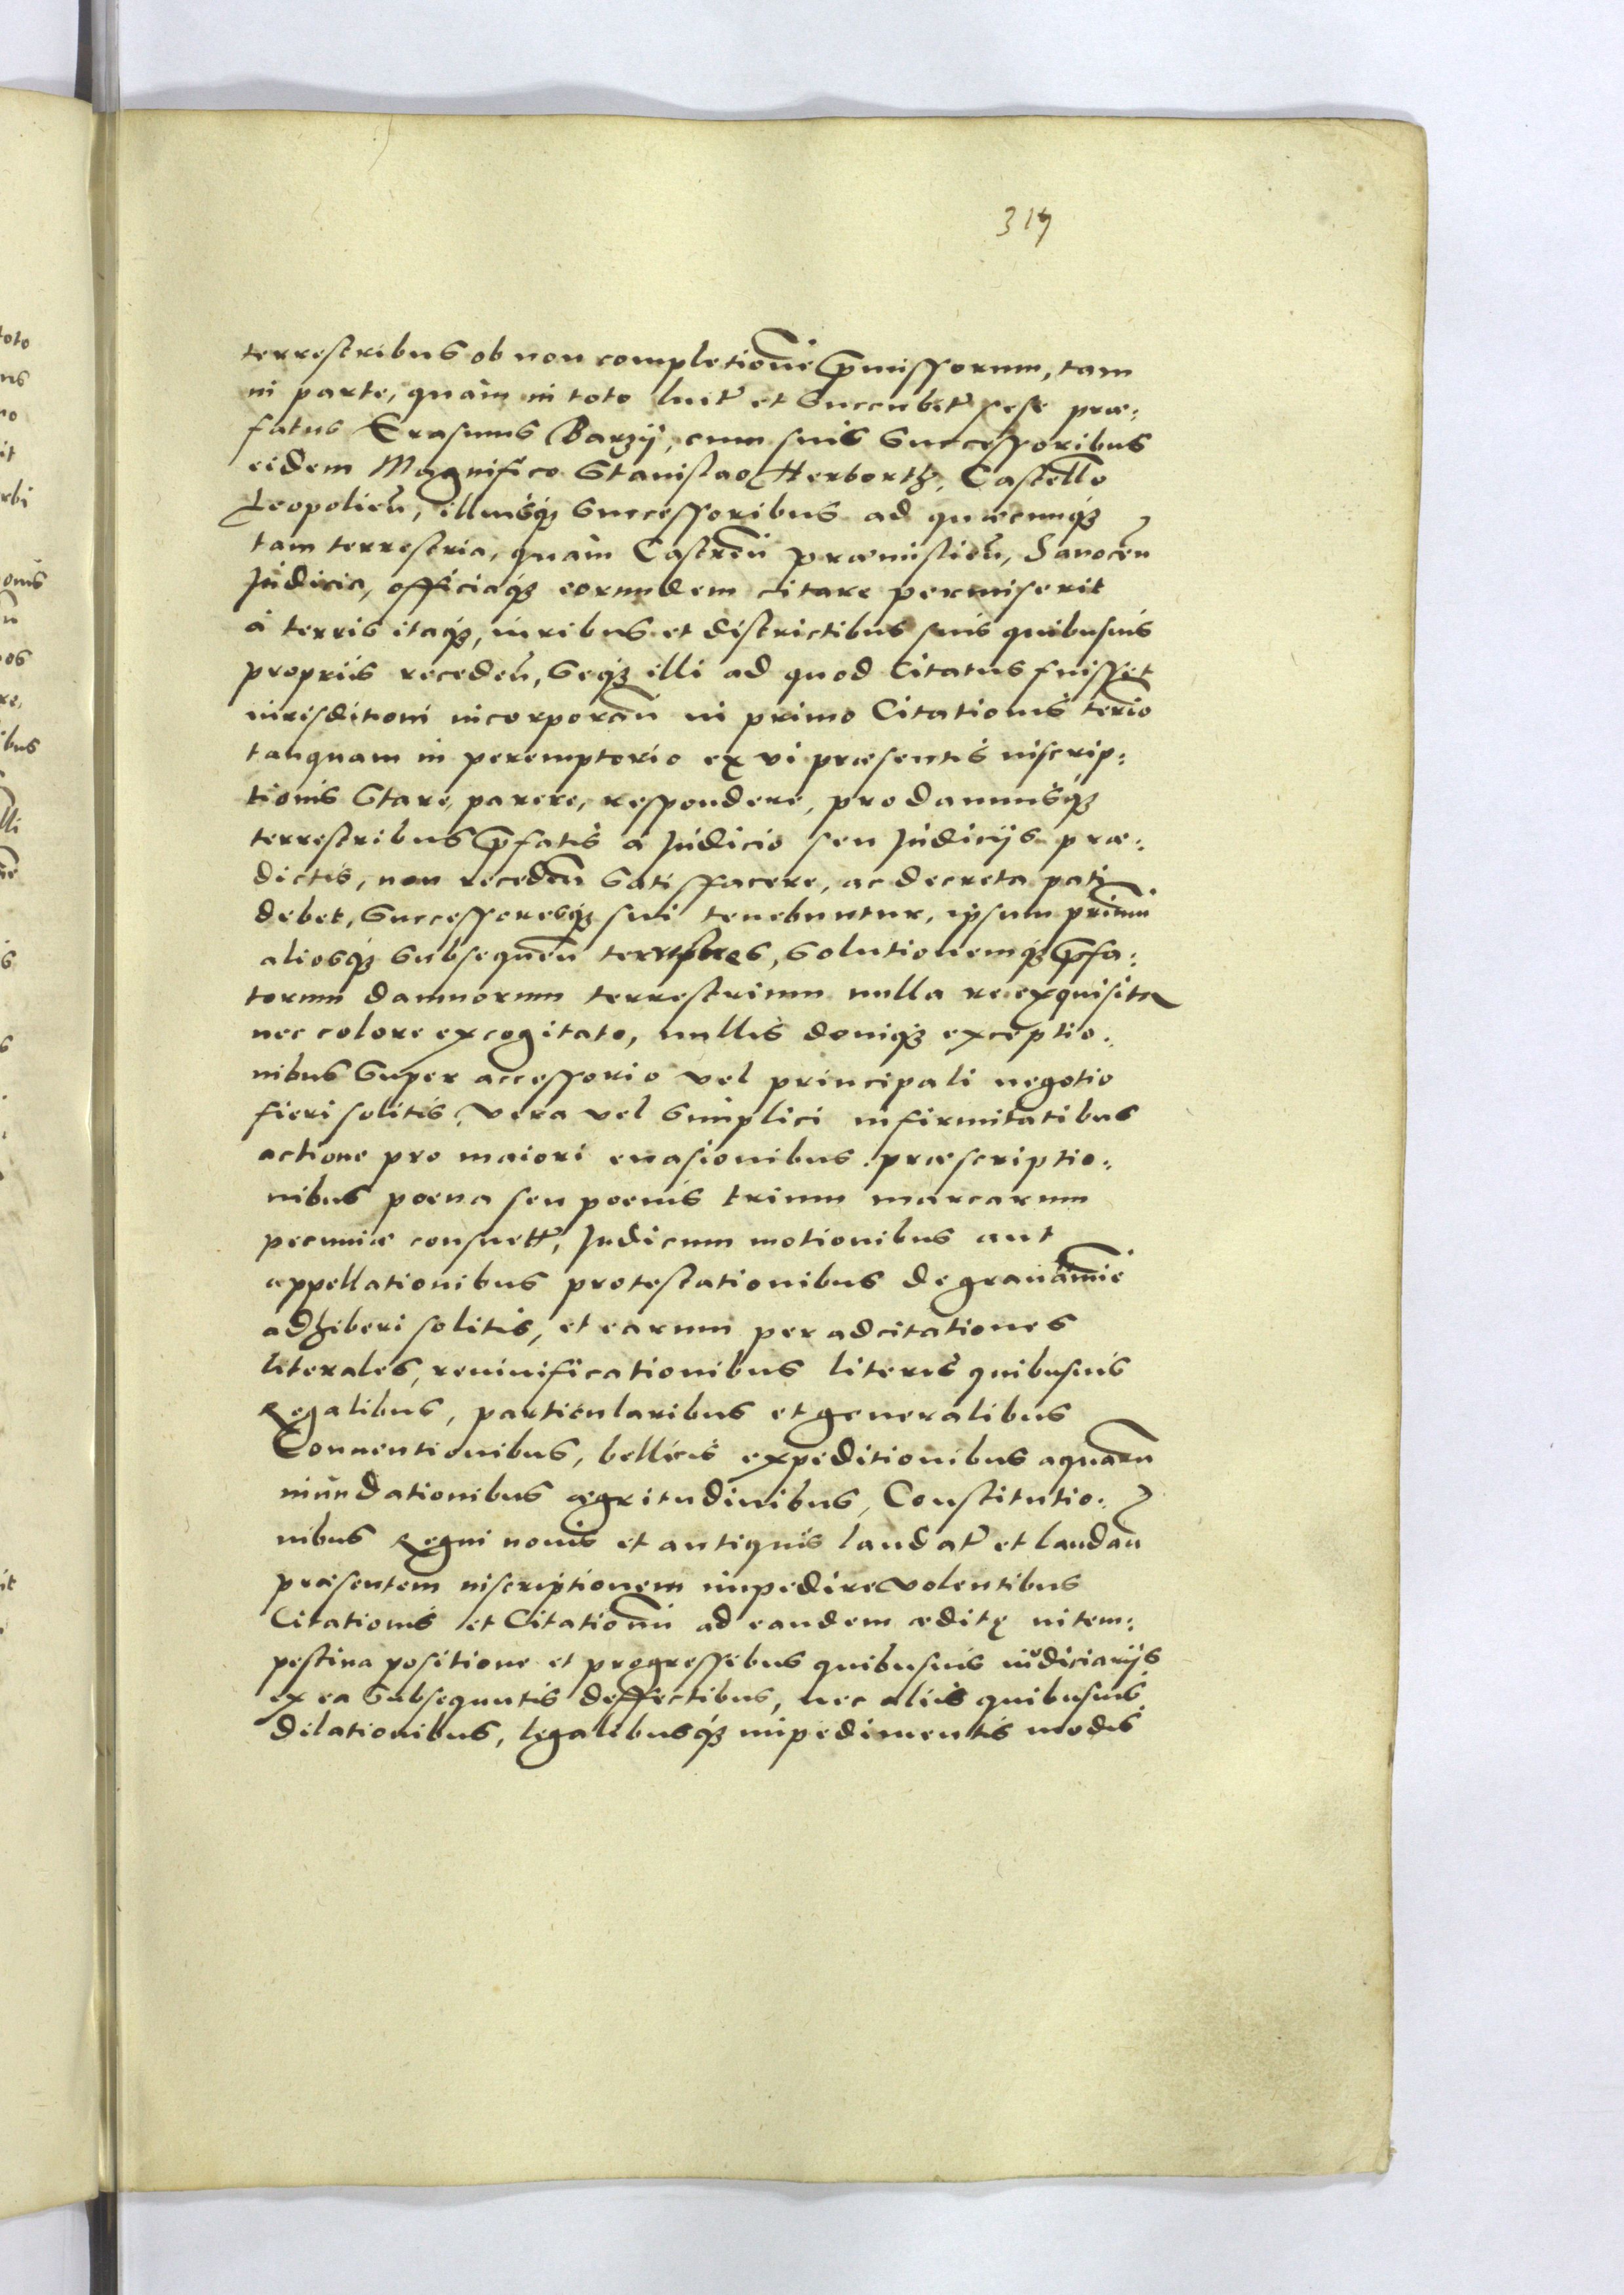 317
terrestribus ob non completione p̄missorum, tam
in parte, quàm in toto luet̃ et succubet̃ sese præ:
fatus Erasmus Barzÿ, cum suis Successoribus
eidem Magnifico Stanislao Herborth, Castello
Leopolien̄, illiusq; successoribus ad quæcunq;
tam terrestria, quàm Castren̄ Præmislien̄, Sanocen̄
Judicia, officiaq; eorundem citare permiserit
à terris itaq;, iuribus et districtibus suis quibusuis
propriis receden̄, seq; illi ad quod Citatus fuisset
iurisditioni incorporan̄ in primo Citationis term̄io
tanquam in peremptorio ex vi præsentis inscrip:
tionis Stare, parere, respondere, pro damnisq;
terrestribus p̄fatis à Judicio seu Judicijs præ:
dictis, non receden̄ satisfacere, ac decreta pati
debet, Successoresq; sui tenebuntur, ipsum primū
aliosq; subsequen̄ , solutionemq; p̄fa:
torum damnorum terrestrium nulla re exquisita
nec colore excogitato, nullis deniq; exceptio:
nibus super accessorio vel principali negotio
fieri solitis, vera vel simplici infirmitatibus
actione pro maiori euasionibus præscriptio:
nibus poena seu poenis trium marcarum
pecuniæ consuett̃, Judicum motionibus aut
appellationibus protestationibus de grauamīe
adhiberi solitis, et earum per adcitationes
literales, reuiuificationibus literis quibusuis
Regalibus, particularibus et generalibus
Conuentionibus, bellicis expeditionibus aquarū
inundationibus ægritudinibus, Constitutio:
nibus Regni nouis et antiquis laudat̃ et laudan̄
præsentem inscriptionem impedire volentibus
Citationis et Citationū ad eandem æditę intem:
pestiua positione et progressibus quibusuis iudiciarijs
ex ea subsequutis deffectibus, nec aliis quibusuis
dilationibus, legalibusq; impedimentis modis